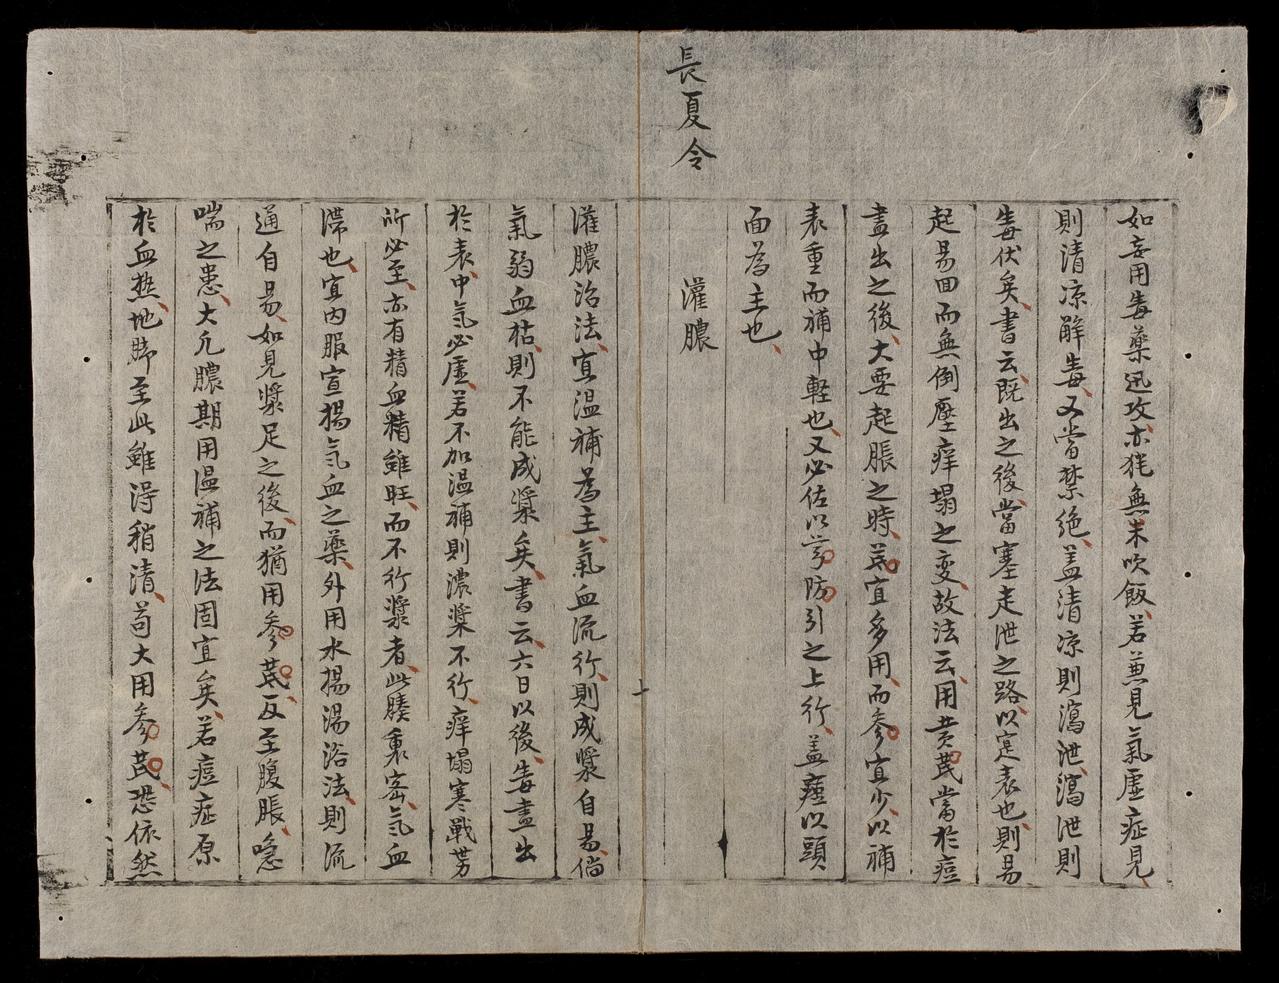 長夏令
如妄用毒藥迅攻、亦猶無米吹飯、若兼見氣虛症見、
則清凉解毒、又當禁絶、盖清凉則瀉泄、瀉泄則
毒伏矣、書云、既出之後、當塞走泄之路、以寔表也、則易
起易回而無倒壓痒塌之変、故法云、用黄芪當於痘
盡出之後、大要起脹之時、芪宜多用、而參宜少、以補
表重而補中軽也、又必佐以芎防引之上行、盖痘以頭
面為主也、
灌膿
十
灌膿治法、宜温補為主、氣血流行、則成漿自易、倘
氣弱血枯、則不能成漿矣、書云、六日以後、毒盡出
於表、中氣必虛、若不加温補則濃漿不行、痒塌寒戰勞
所必至、亦有精血精雖旺、而不行漿者、此腠裏宻、氣血
滞也、宜内服宣揚氣血之藥、外用水揚湯浴法、則流
通自易、如見漿足之後、而猶用參芪、反至腹脹、喘
喘之患、大凡膿期用温補之法固宜矣、若痘症原
於血热、地脚至此雖得稍清、苟大用參芪、恐依然